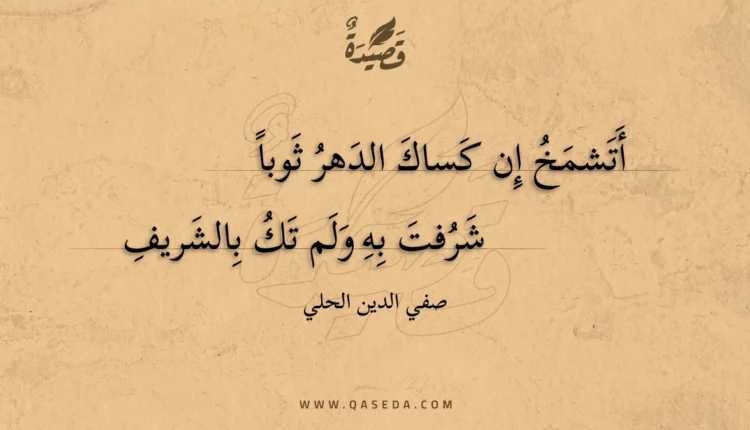 قَصِيْدَةٌ
أَتَشمَخُ إِن كَساكَ الدَهرُ ثَوباً
شَرُفتَ بِهِ وَلَم تَكُ بِالشَريفِ
صفي الدين الحلي
WWW.QASEDA.COM